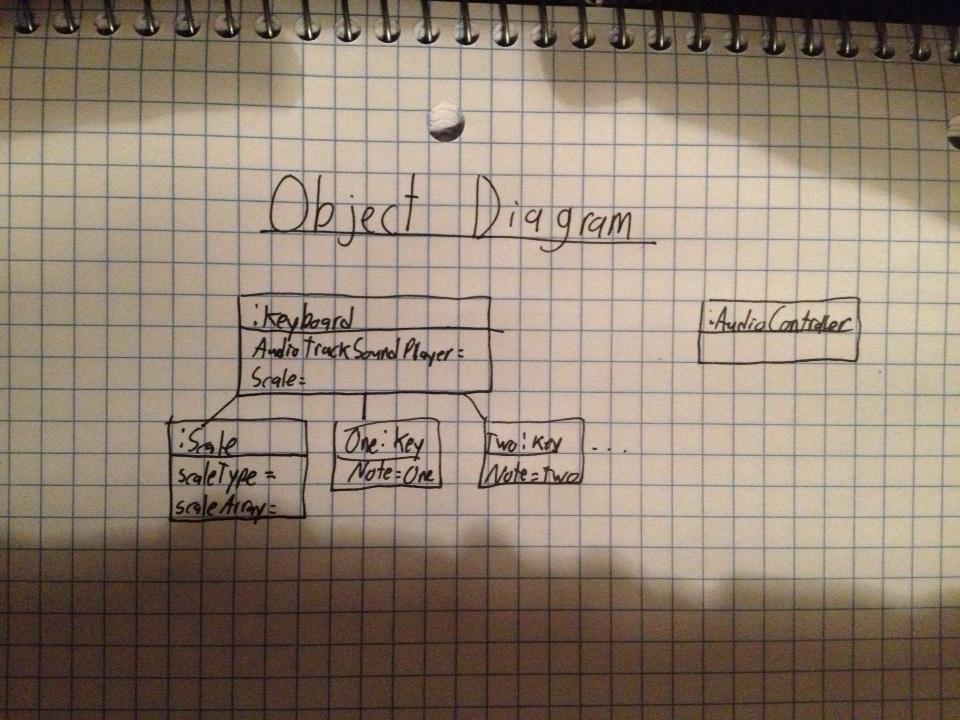 Object Diagram
:Keyboard
AudioTrackSoundPlayer=
Scale=
:AudioController
:Scale
scaleType =
scaleArray=
One:Key
Note=One
Two:Key
Note=Two
...